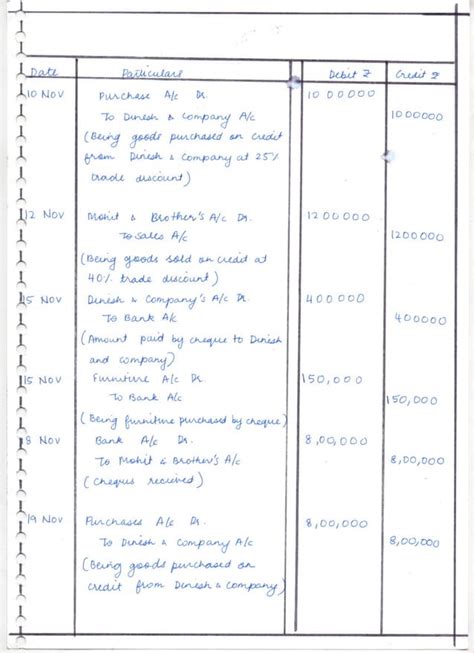 Date Particulars Debit ₹ Credit ₹
10 Nov Purchase A/c Dr. 1000000
To Dinesh & Company A/c 1000000
(Being goods purchased on credit
from Dinesh & Company at 25%
trade discount)
12 Nov Mohit & Brother's A/c Dr. 1200000
To Sales A/c 1200000
(Being goods sold on credit at
40% trade discount)
15 Nov Dinesh & Company's A/c Dr. 400000
To Bank A/c 400000
(Amount paid by cheque to Dinesh
and company)
15 Nov Furniture A/c Dr. 150,000
To Bank A/c 150,000
(Being furniture purchased by cheque)
18 Nov Bank A/c Dr. 8,00,000
To Mohit & Brother's A/c 8,00,000
(Cheques recieved)
19 Nov Purchases A/c Dr. 8,00,000
To Dinesh & Company A/c 8,00,000
(Being goods purchased on
credit from Dinesh & Company)